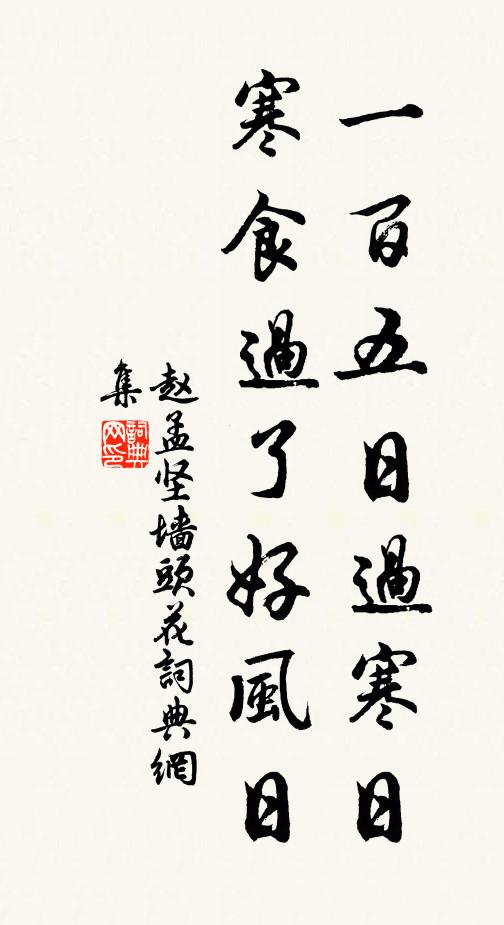 一百五日過寒日
寒食過了好風日
赵孟坚墙頭花詞典網
集
詞典
网印